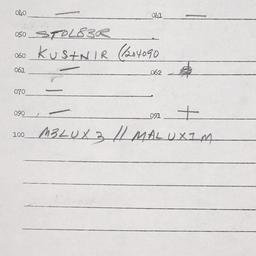 040 — 041 —
050 STOLB3R
060 KUSTNIR (1204090
061 — 062
070 —
090 — 091 +
100 M3LUX 3 // MALUXIM